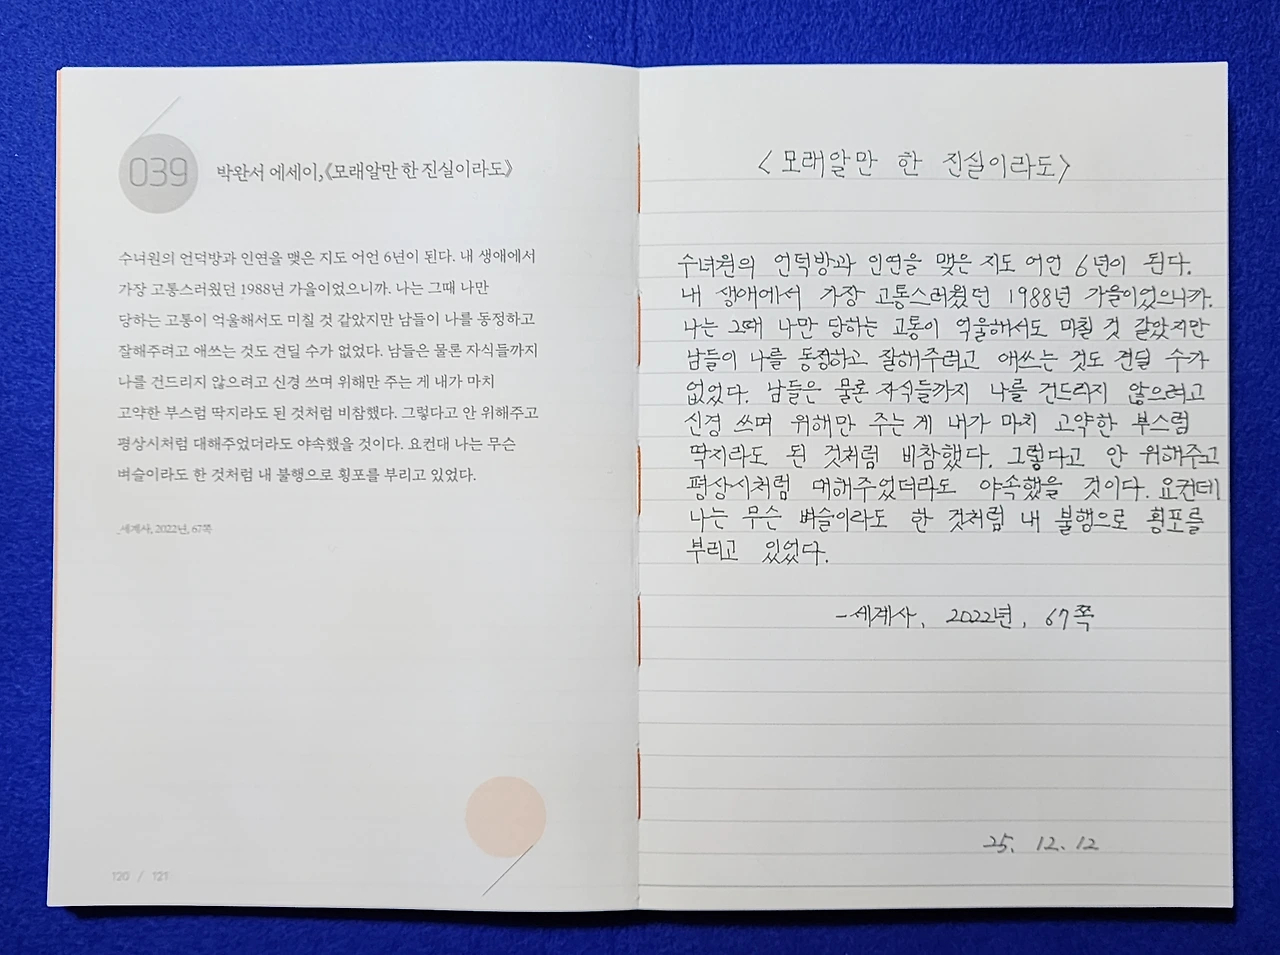 039
박완서 에세이, 《모래알만 한 진실이라도》
수녀원의 언덕방과 인연을 맺은 지도 어언 6년이 된다. 내 생애에서
가장 고통스러웠던 1988년 가을이었으니까. 나는 그때 나만
당하는 고통이 억울해서도 미칠 것 같았지만 남들이 나를 동정하고
잘해주려고 애쓰는 것도 견딜 수가 없었다. 남들은 물론 자식들까지
나를 건드리지 않으려고 신경 쓰며 위해만 주는 게 내가 마치
고약한 부스럼 딱지라도 된 것처럼 비참했다. 그렇다고 안 위해주고
평상시처럼 대해주었더라도 야속했을 것이다. 요컨대 나는 무슨
벼슬이라도 한 것처럼 내 불행으로 횡포를 부리고 있었다.
_세계사, 2022년, 67쪽
120 / 121
<모래알만 한 진실이라도>
수녀원의 언덕방과 인연을 맺은 지도 어언 6년이 된다.
내 생애에서 가장 고통스러웠던 1988년 가을이었으니까.
나는 그때 나만 당하는 고통이 억울해서도 미칠 것 같았지만
남들이 나를 동정하고 잘해주려고 애쓰는 것도 견딜 수가
없었다. 남들은 물론 자식들까지 나를 건드리지 않으려고
신경 쓰며 위해만 주는 게 내가 마치 고약한 부스럼
딱지라도 된 것처럼 비참했다. 그렇다고 안 위해주고
평상시처럼 대해주었더라도 야속했을 것이다. 요컨데
나는 무슨 벼슬이라도 한 것처럼 내 불행으로 횡포를
부리고 있었다.
-세계사, 2022년, 67쪽
25. 12. 12